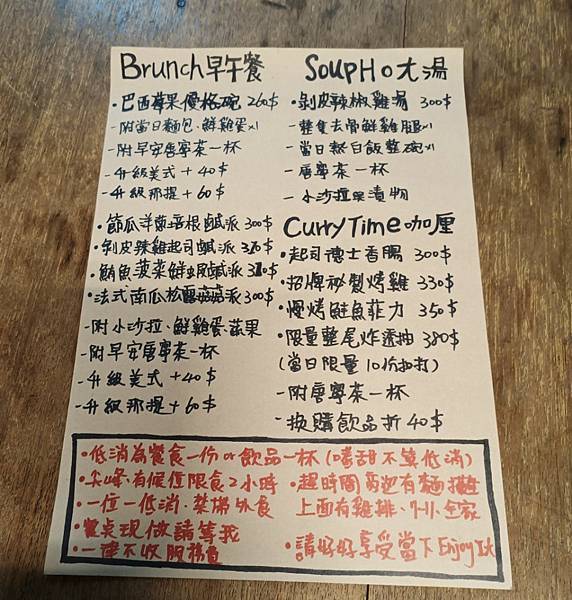 Brunch早午餐
・巴西莓果優格碗 260$
-附當日麵包、鮮雞蛋x1
-附早安唐寧茶一杯
-升級美式+40$
-升級那提+60$
・節瓜洋菇培根鹹派 300$
・剝皮辣雞起司鹹派 320$
・鮪魚菠菜鮮蝦鹹派
・法式南瓜松露菇菇派 300$
-附小沙拉、鮮雞蛋、蔬果
-附早安唐寧茶一杯
-升級美式+40$
-升級那提+60$
SoupHot湯
・剝皮辣椒雞湯 300$
-整隻去骨鮮雞腿x1
-當日熱白飯整碗x1
-唐寧茶一杯
-小沙拉 漬物
CurryTime咖厘
・起司德士香腸 300$
・招牌祕製烤雞 330$
・慢烤鮭魚菲力 350$
・限量整尾炸透抽 380$
(當日限量10份扣打)
-附唐寧茶一杯
-換購飲品折40$
・低消為餐食一份or飲品一杯(嗜甜不算低消)
・尖峰、有候位限食2小時
・一位一低消、禁攜外食
・餐桌現做請等我
・一律不收服務費
・趕時間 有麵攤
上面有雞排、7-11、全家
・請好好享受當下Enjoy It